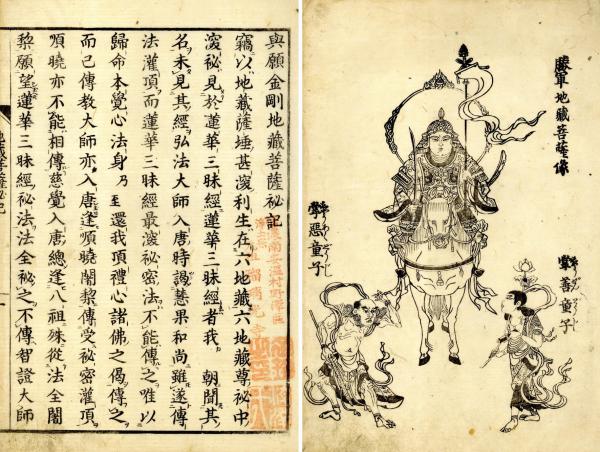 勝軍地藏菩薩像
掌善童子
掌惡童子
與願金剛地藏菩薩秘記
竊以地藏薩埵甚深利生在六地藏六地藏尊秘中
深秘見於蓮華三昧經蓮華三昧經者我 朝聞其
名未見其經弘法大師入唐時謁慧果和尚雖遂傳
法灌頂而蓮華三昧經最深秘密法不能傳之唯以
歸命本覺心法身乃至還我頂禮心諸佛之偈傳之
而已傳教大師亦入唐逢順曉闍黎傳受秘密灌頂
順曉亦不能相傳慈覺入唐總逢八祖殊從法全闍
黎願望蓮華三昧經秘法法全秘之不傳智證大師